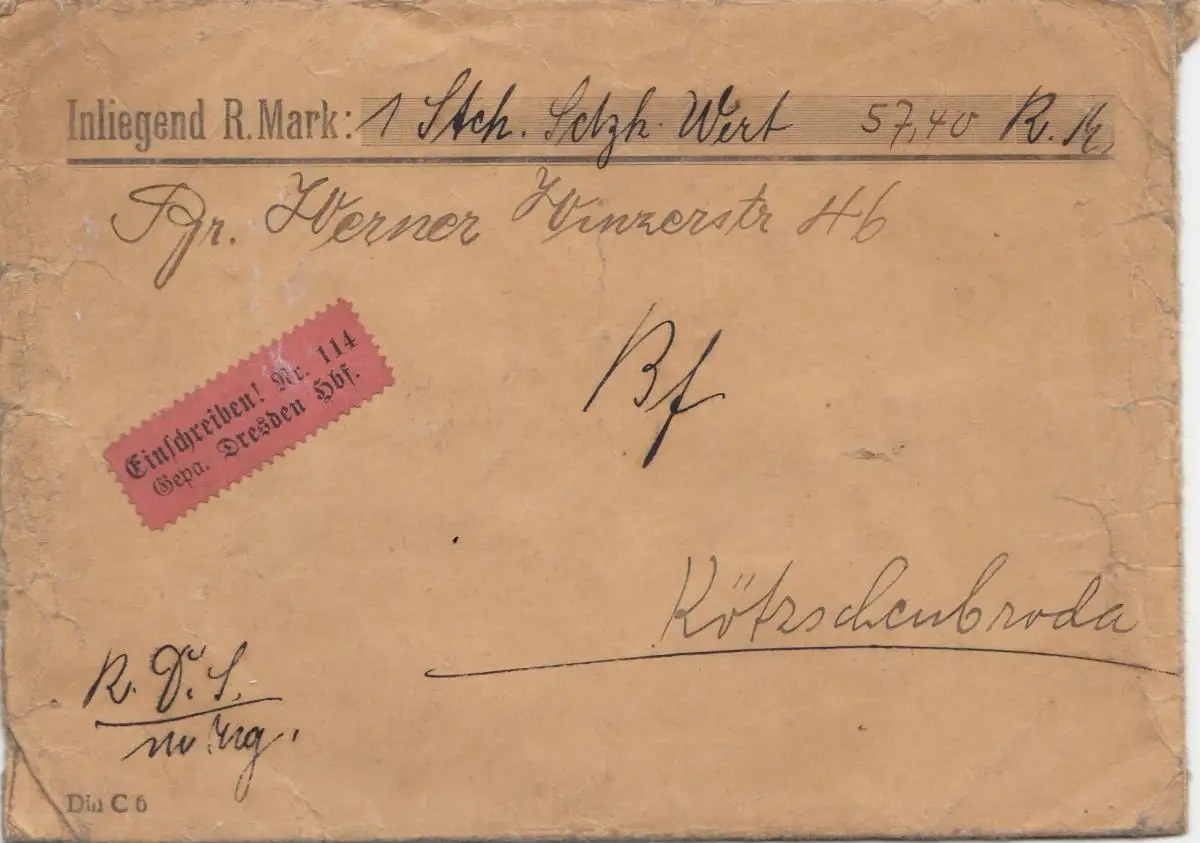 Inliegend R. Mark: 1 Stck. Sctzk. Wert 57,40 R. M.
Werner Winzerstr 46
Einschreiben! Nr. 114
Gepa. Dresden Hbf.
Bf
Kötzschenbroda
R. D. S.
Din C 6